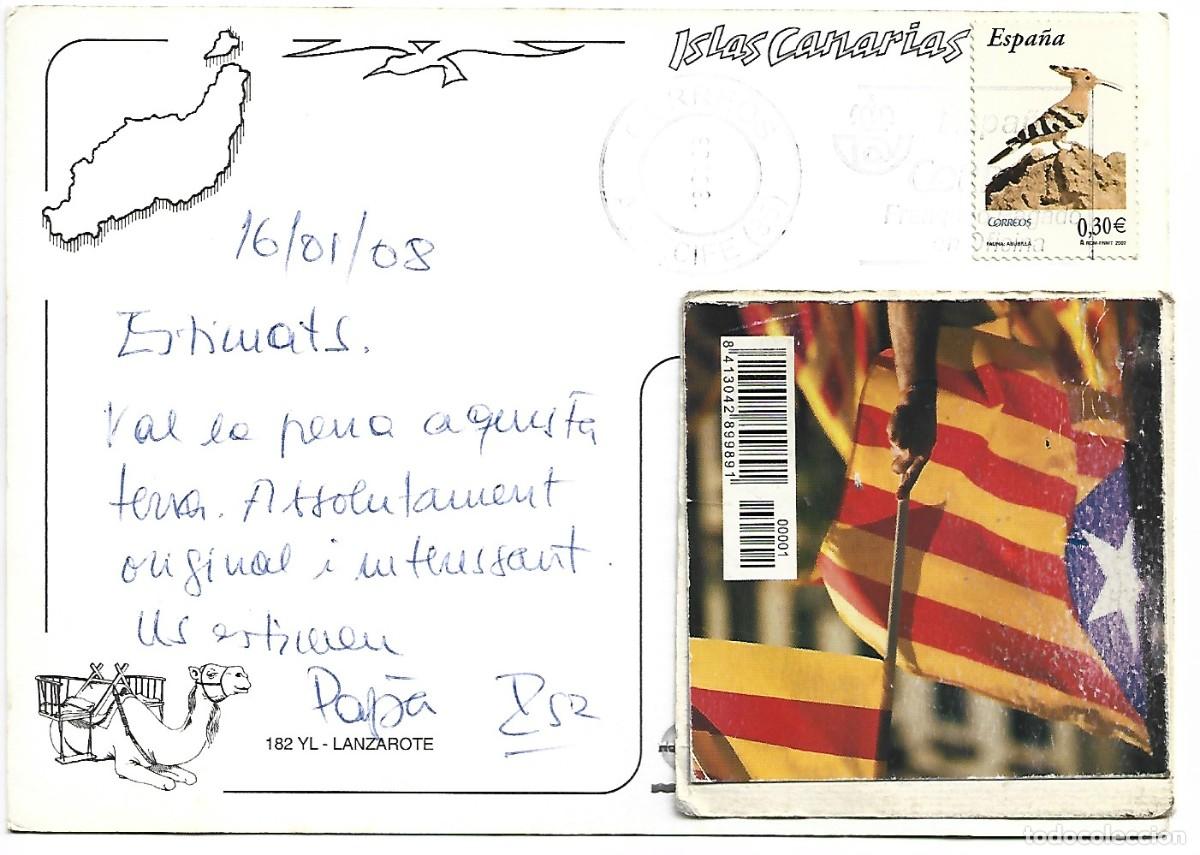 Islas Canarias
España
CORREOS
0,30€
FAUNA: ABUBILLA
RCM-FNMT 2007
CORREOS
16/01/08
Estimats.
Val la pena aquesta
terra. Assolutament
original i interessant.
Us estimen
Papà
182 YL - LANZAROTE
8413042899891
00001
todocoleccion